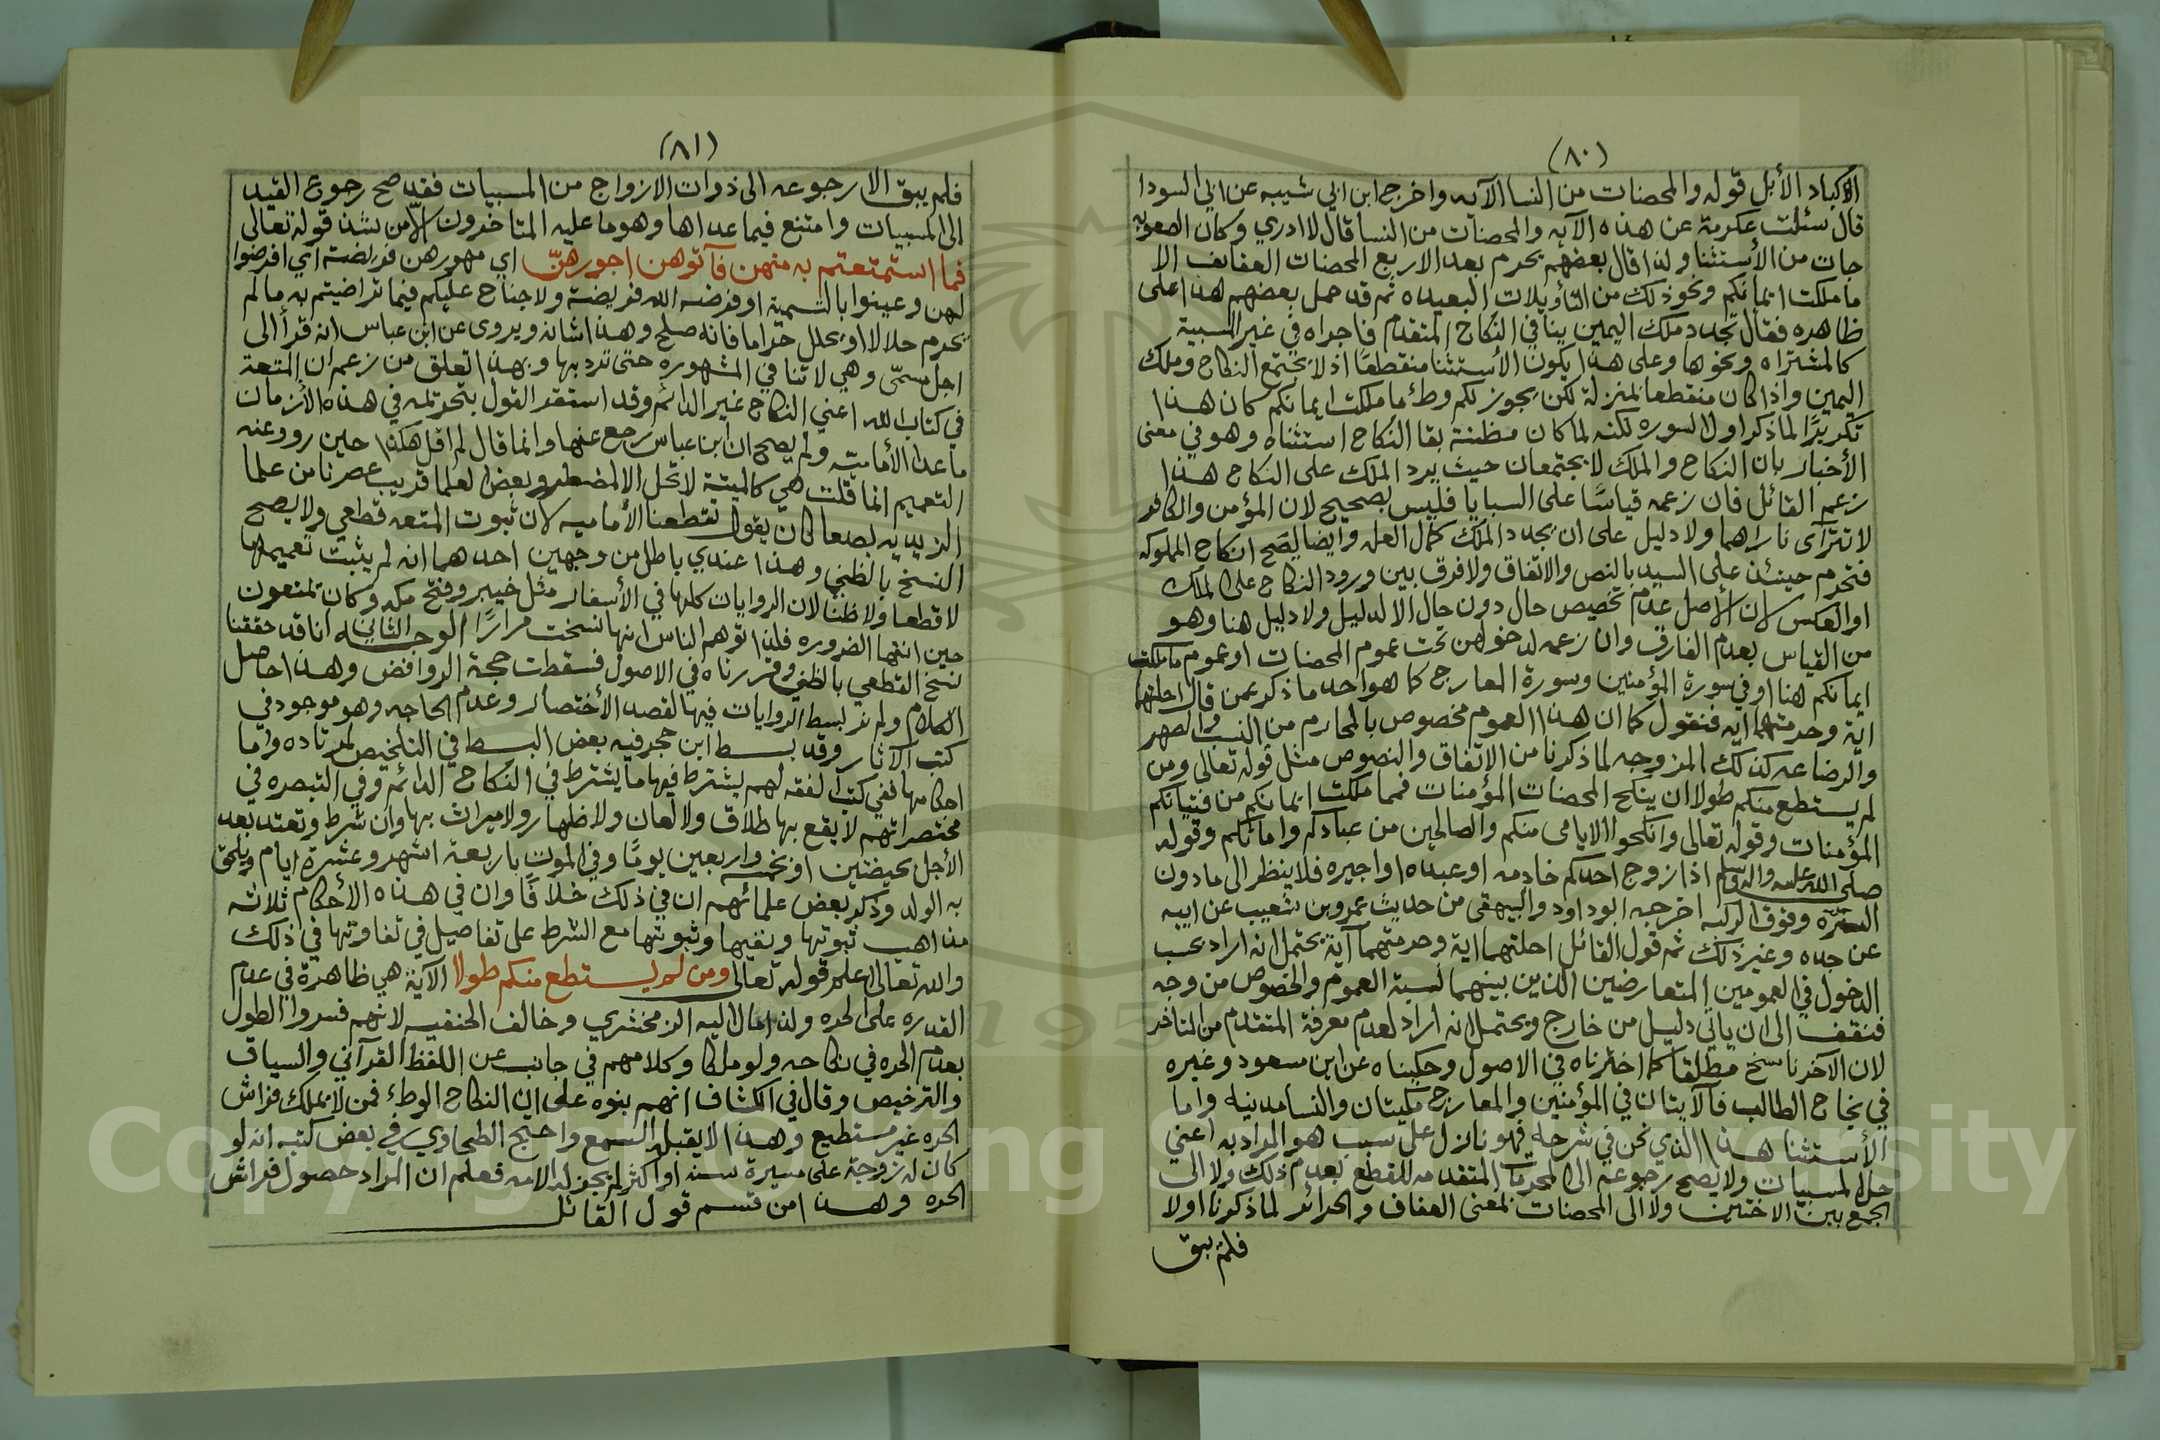 (٨٠)
الاكباد الأبل قوله والمحصنات من النسا الآيه واخرج ابن ابي شيبه عن ابي السودا
قال سئلت عكرمة عن هذه الآيه والمحصنات من النسا قال لا ادري وكان الصعوبة
جات من الأستثنا ولذا قال بعضهم يحرم بعد الاربع المحصنات العفايف الا
ما ملكت ايمانكم ونحو ذلك من التأويلات البعيده ثم قد حمل بعضهم هذا على
ظاهره فقال تجدد ملك اليمين ينافي النكاح المتقدم فاجراه في غير المسبية
كالمشتراه ونحوها وعلى هذا يكون الأستثنا منقطعًا اذ لا يجتمع النكاح وملك
اليمين واذا كان منقطعا بمنزلة لكن يجوز لكم وطئ ما ملكت ايمانكم كان هذا
تكريرًا لما ذكر اول السوره لكنه لما كان مظنة بقا النكاح استثناه وهو في معنى
الأخبار بان النكاح والملك لا يجتمعان حيث يرد الملك على النكاح هذا
زعم القائل فان زعمه قياسًا على السبايا فليس بصحيح لان المؤمن والكافر
لا تترآى ناراهما ولا دليل على ان تجدد الملك كمال العله وايضا يصح انكاح المملوكه
فتحرم حينئذ على السيد بالنص والاتفاق ولا فرق بين ورود النكاح على الملك
او العكس لان الأصل عدم تخصيص حال دون حال الا لدليل ولا دليل هنا وهو
من القياس بعدم الفارق وان زعمه لدخولهن تحت عموم المحصنات او عموم ما ملكت
ايمانكم هنا او في سورة المؤمنين وسورة المعارج كما هو احد ما ذكر عمن قال احلتهما
اية وحرمتهما ايه فنقول كما ان هذا العموم مخصوص بالمحارم من النسب والصهر
والرضاعه كذلك المزوجه لما ذكرنا من الاتفاق والنصوص مثل قوله تعالى ومن
لم يستطع منكم طولا ان ينكح المحصنات المؤمنات فمما ملكت ايمانكم من فتياتكم
المؤمنات وقوله تعالى وانكحوا الايامى منكم والصالحين من عبادكم وامائكم وقوله
صلى الله عليه واله وسلم اذا زوج احدكم خادمه او عبده او اجيره فلا ينظر الى ما دون
السره وفوق الركبه اخرجه ابو داود والبيهقي من حديث عمرو بن شعيب عن ابيه
عن جده وغير ذلك ثم قول القائل احلتهما اية وحرمتهما آية يحتمل انه اراد بحسب
الدخول في العمومين المتعارضين الذين بينهما نسبة العموم والخصوص من وجه
فنقف الى ان ياتي دليل من خارج ويحتمل انه اراد لعدم معرفة المتقدم من المتاخر
لان الآخر ناسخ مطلقا كما اخترناه في الاصول وحكيناه عن ابن مسعود وغيره
في نجاح الطالب فالآيتان في المؤمنين والمعارج مكيتان والنسا مدنيه واما
الأستثنا هذا الذي نحن في شرحه فهو نازل على سبب هو المراد به اعني
حل المسبيات ولا يصح رجوعه الى المحرمات المتقدمه للقطع بعدم ذلك ولا الى
الجمع بين الاختين ولا الى المحصنات بمعنى العفاف والحرائر لما ذكرنا اولا
فلم يبق
(٨١)
فلم يبق الا رجوعه الى ذوات الازواج من المسبيات فقد صح رجوع القيد
الى المسبيات وامتنع فيما عداها وهو ما عليه المتاخرون الا من شذ قوله تعالى
فما استمتعتم به منهن فآتوهن اجورهنّ اي مهورهن فريضة اي افرضوا
لهن وعينوا بالتسمية او فرضه الله فريضة ولا جناح عليكم فيما تراضيتم به ما لم
يحرم حلالا او يحلل حراما فانه صلح وهذا شانه ويروى عن ابن عباس انه قرأ الى
اجل مسمّى وهي لاتنا في المشهوره حتى ترد بها وبهذا تعلق من زعم ان المتعة
في كتاب الله اعني النكاح غير الدائم وقد استقر القول بتحريمه في هذه الأزمان
ما عدا الأماميه ولم يصح ان ابن عباس رجع عنها وانما قال لم اقل هكذا حين رود عنه
التعميم انما قلت هي كالميتة لا تحل الا للمضطر وبعض العلما قريب عصرنا من علما
الزيديه بصعا كان يقول تقطعنا الأماميه لان ثبوت المتعه قطعي ولا يصح
النسخ بالظني وهذا عندي باطل من وجهين احدهما انه لم يثبت تعميمها
لا قطعا ولا ظنا لان الروايات كلها في الأسفار مثل خيبر وفتح مكه وكان تمتعون
حين انقها الضروره فلذا توهم الناس انها نسخت مرارًا الوجه الثاني انا قد حققنا
نسخ القطعي بالظني وقررناه في الاصول فسقطت حجة الروافض وهذا حاصل
الكلام ولم نر بسط الروايات فيها لقصد الأختصار وعدم الحاجه وهو موجود في
كتب الآثار وقد بسط ابن حجر فيه بعض البسط في التلخيص لمن تاده واما
احكامها ففي كتب الفقه لهم يشترط فيها ما يشترط في النكاح الدائم وفي التبصره في
مختصراتهم لا يقع بها طلاق ولا لعان ولا ظهار ولا ميراث بها وان شرط وتعتد بعد
الأجل بحيضتين او بخمسه واربعين يومًا وفي الموت باربعة اشهر وعشرة ايام ويلحق
به الولد وذكر بعض علمائهم ان في ذلك خلافًا وان في هذه الأحكام ثلاثه
مذاهب ثبوتها ونفيها وثبوتها مع الشرط على تفاصيل في تفاوتها في ذلك
والله تعالى اعلم قوله تعالى ومن لم يستطع منكم طولا الآية هي ظاهرة في عدم
القدره على الحره ولذا مال اليه الزمخشري وخالف الحنفيه لانهم فسروا الطول
بعدم الحره في نكاحه ولو ملكا وكلامهم في جانب عن اللفظ القرآني والسياق
والترخيص وقال في الكشاف انهم بنوه على ان النكاح الوطء فمن لا يملك فراش
الحره غير مستطيع وهذا لا يقبله السمع واحتج الطحاوي في بعض كتبه انه لو
كان له زوجة على مسيرة سنه او اكثر لم يجز له الامه فعلم ان المراد حصول فراش
الحره وهذا من قسم قول القائل
Copyright © King Saud University
1957